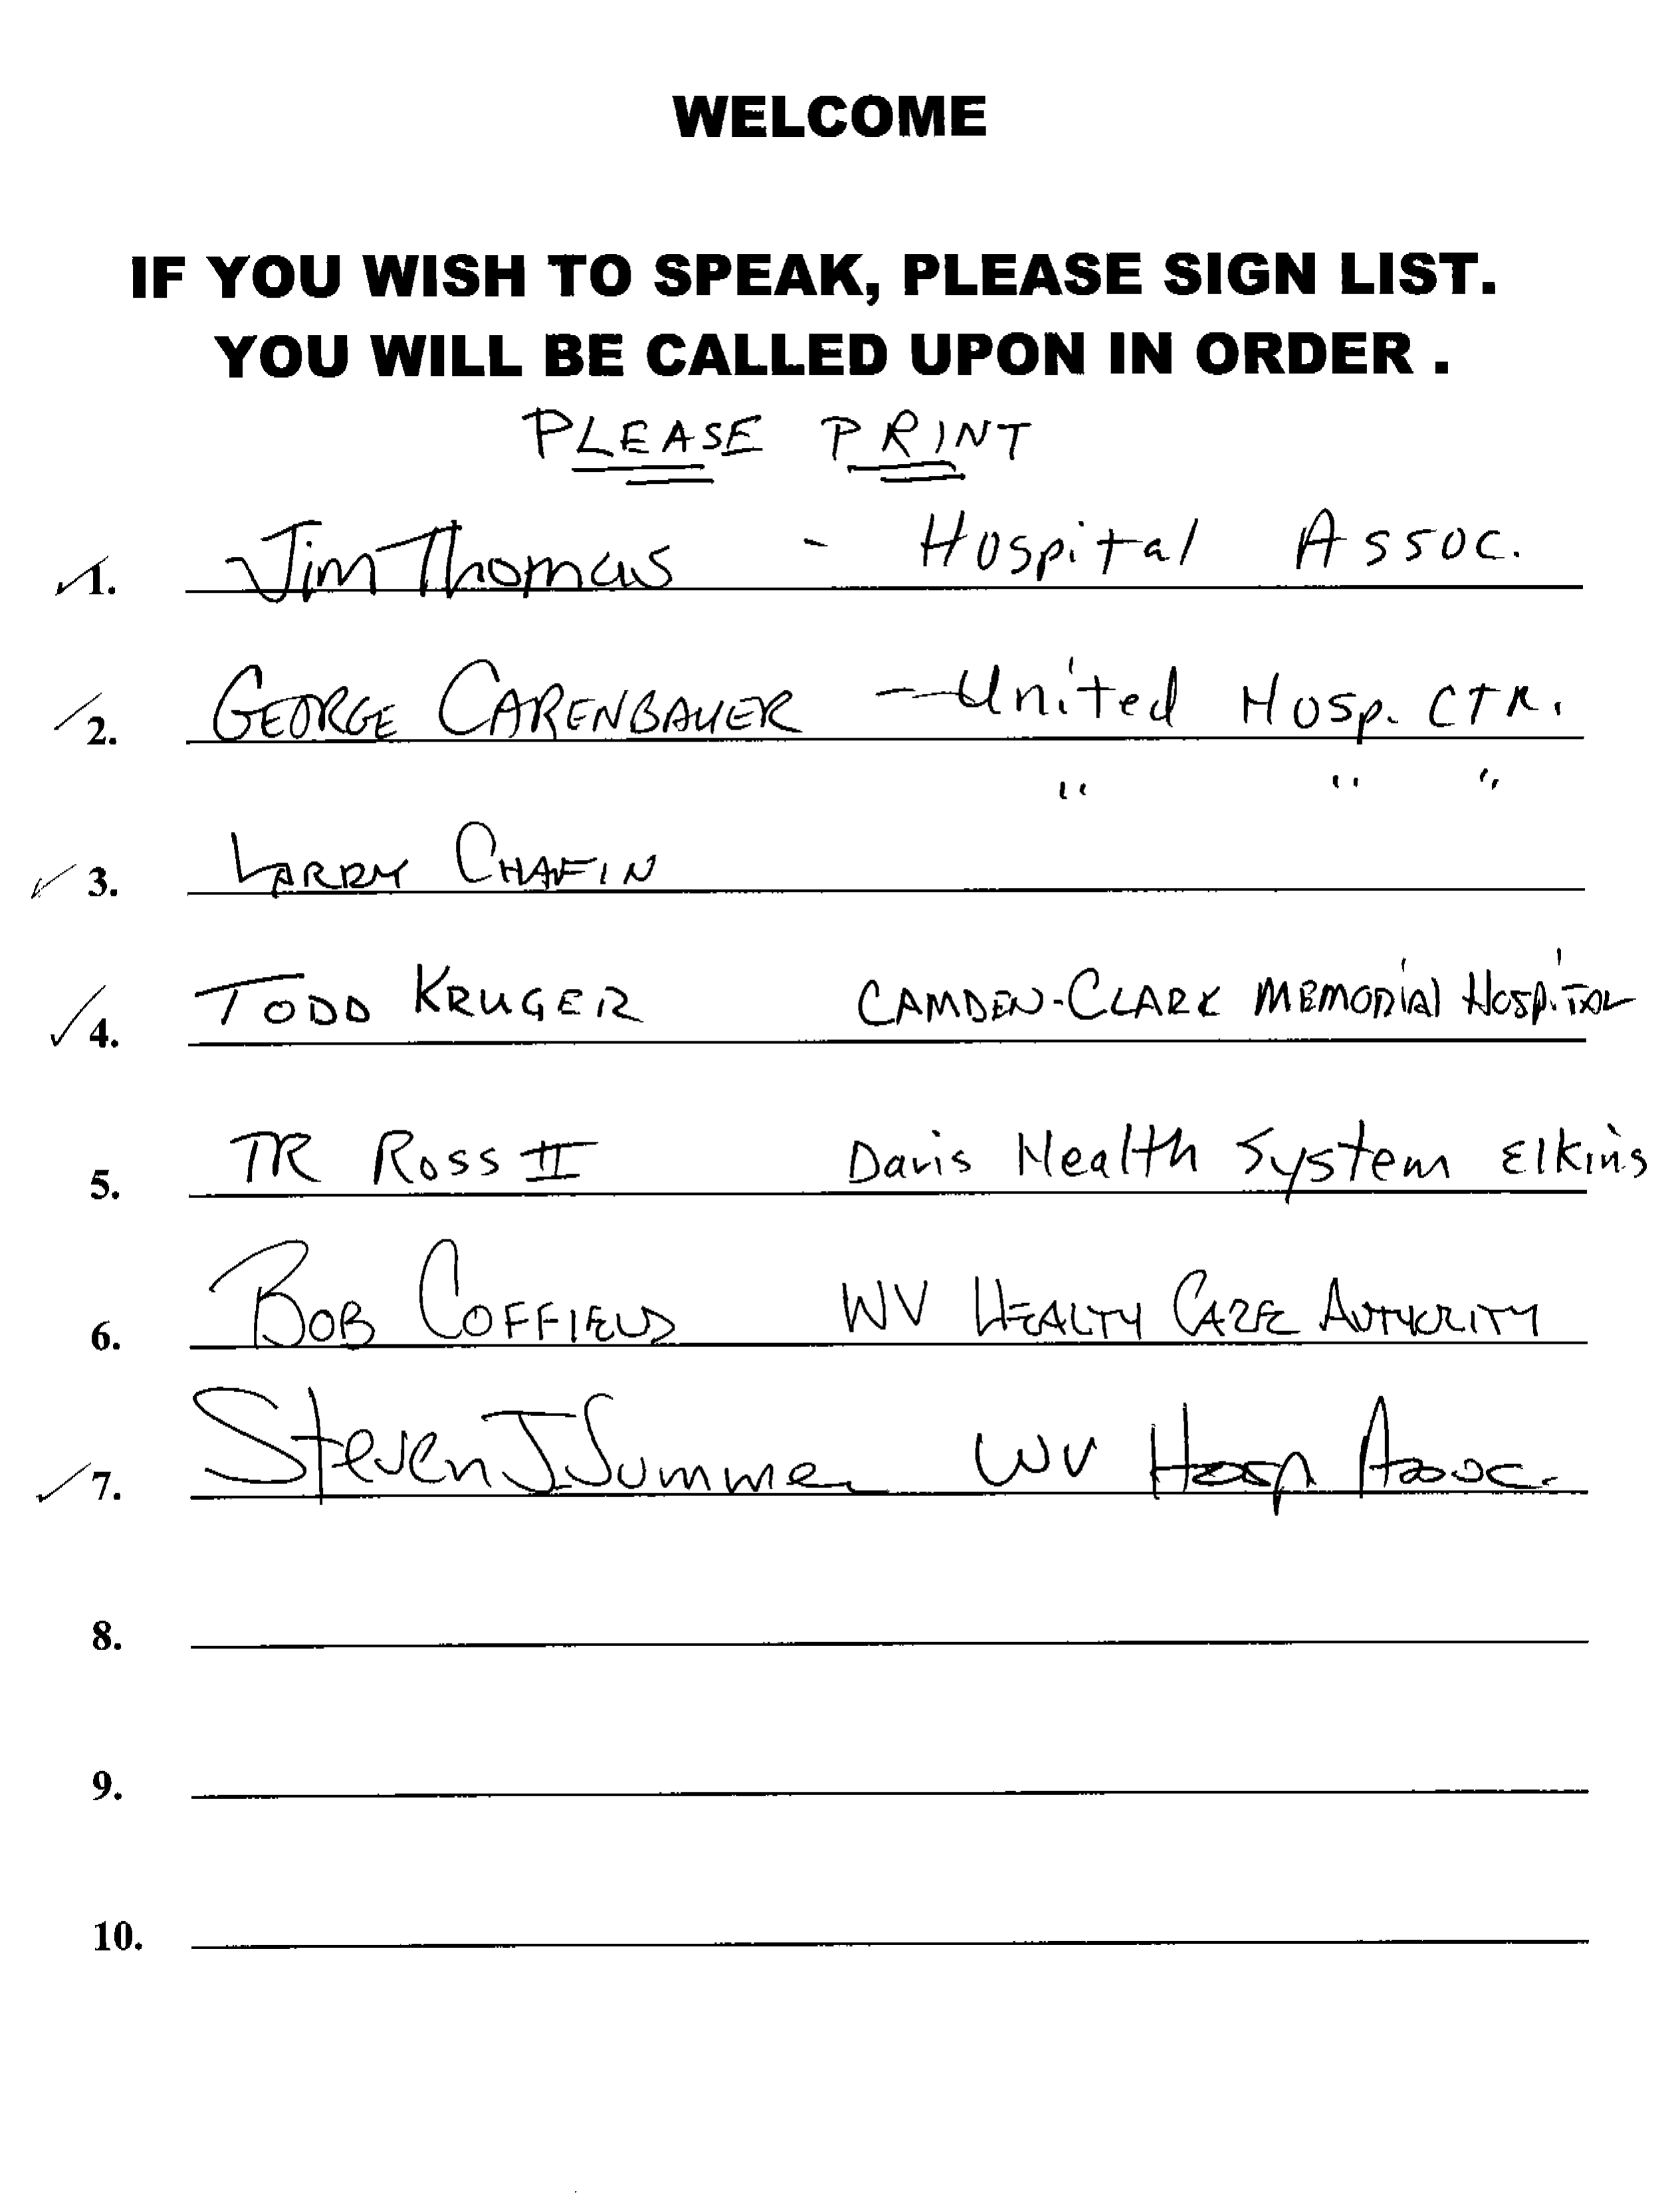 WELCOME
IF YOU WISH TO SPEAK, PLEASE SIGN LIST.
YOU WILL BE CALLED UPON IN ORDER .
PLEASE PRINT
✓1. Jim Thomas - Hospital Assoc.
✓2. GEORGE CARENBAUER - United Hosp. CTR.
" " "
✓3. LARRY CHAFIN
✓4. TODD KRUGER CAMDEN-CLARK MEMORIAL HOSPITAL
5. TR Ross II Davis Health System Elkins
6. BOB COFFIELD WV HEALTH CARE AUTHORITY
✓7. Steven J Summer WV Hosp Assoc.
8.
9.
10.